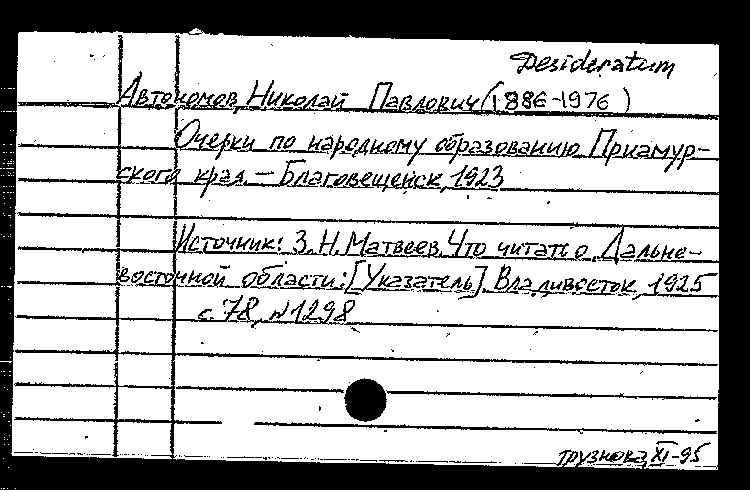 Desideratum
Автономов, Николай Павлович (1886-1976)
Очерки по народному образованию Приамур-
ского края. — Благовещенск, 1923
Источник: З.Н. Матвеев. Что читать о Дальне-
восточной области: [Указатель]. Владивосток, 1925
с. 78, №1298
Грузнова, XI-95